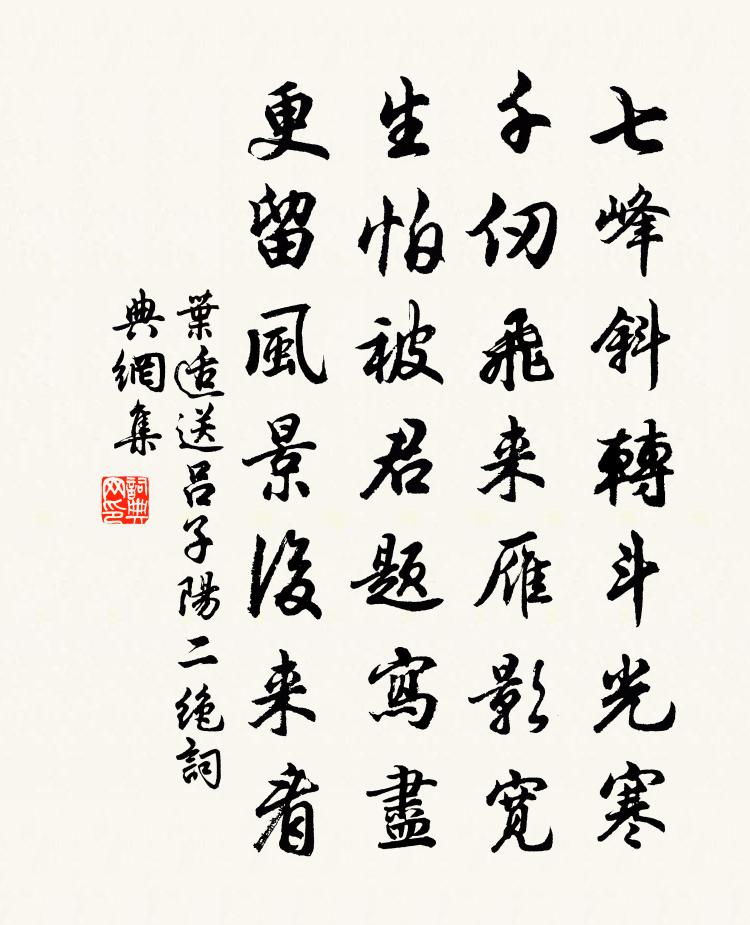 七峰斜轉斗光寒
千仞飛来雁影寬
生怕被君題寫盡
更留風景後来看
葉適送吕子陽二絶詞
典網集
詞典网印